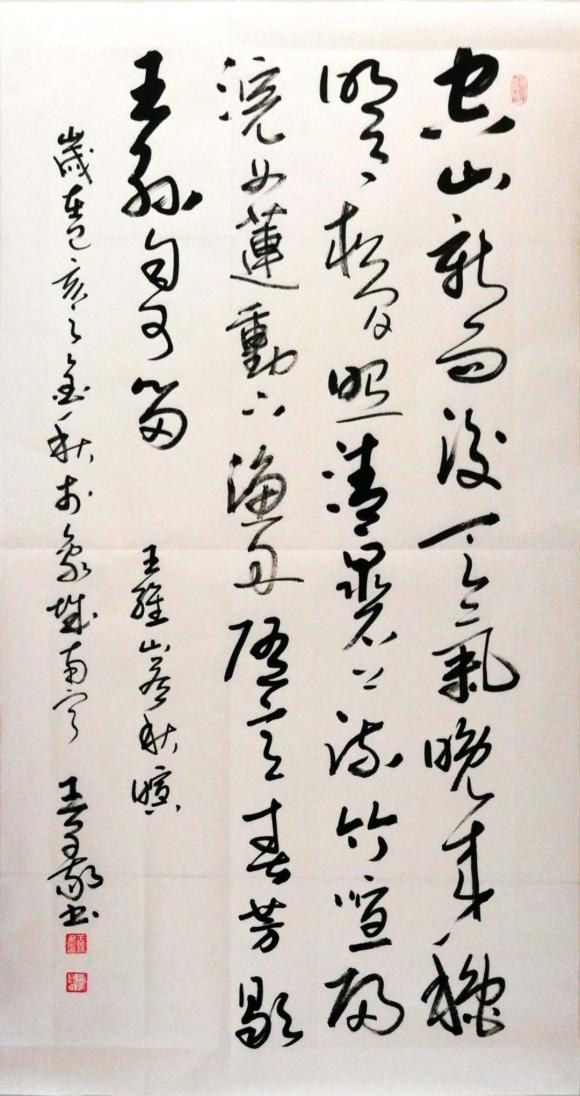 空山新雨後天氣晚来穐
明月松間照清泉石上流竹喧歸
浣女蓮動下漁舟随意春芳歇
王孫自可留
王維山居秋暝
歲在己亥之金秋於象城南寧 書